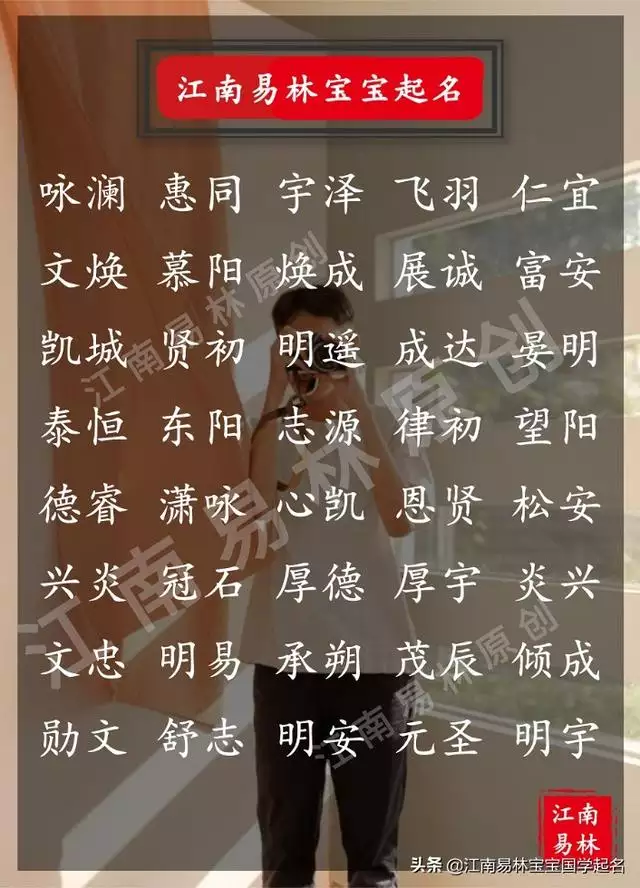 江南易林宝宝起名
咏澜 惠同 宇泽 飞羽 仁宜
文焕 慕阳 焕成 展诚 富安
凯城 贤初 明遥 成达 晏明
泰恒 东阳 志源 律初 望阳
德睿 潇咏 心凯 恩贤 松安
兴炎 冠石 厚德 厚宇 炎兴
文忠 明易 承朔 茂辰 倾成
勋文 舒志 明安 元圣 明宇
江南易林原创
江南易林原创
江南易林原创
江南
易林
头条 @江南易林宝宝国学起名